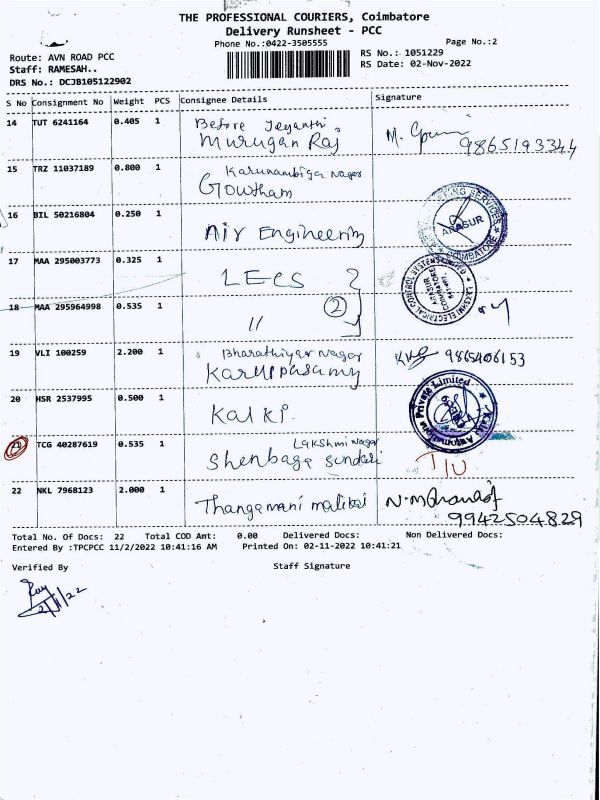 THE PROFESSIONAL COURIERS, Coimbatore
Delivery Runsheet - PCC
Phone No.:0422-3505555
Page No.:2
Route: AVN ROAD PCC
RS No.: 1051229
Staff: RAMESAH..
RS Date: 02-Nov-2022
DRS No.: DCJB105122902
S No Consignment No Weight PCS Consignee Details Signature
14 TUT 6241164 0.405 1 Before Jeyanthi
Murugan Raj
9865193344
15 TRZ 11037189 0.800 1 Karunambiga Nagar
Gowtham
16 BIL 50216804 0.250 1 Air Engineering
ARASUR
COIMBATORE
17 MAA 295003773 0.325 1 LECS
LAKSHMI ELECTRICAL CONTROL SYSTEMS LIMITED
ARASUR
COIMBATORE
18 MAA 295964998 0.535 1 " 2
19 VLI 100259 2.200 1 Bharathiyar Nagar
Karuppasamy
9865406153
20 HSR 2537995 0.500 1 Kalki
Private Limited
21 TCG 40287619 0.535 1 Lakshmi Nagar
Shenbaga Sundari
22 NKL 7968123 2.000 1 Thangamani malikai
9942504829
Total No. Of Docs: 22 Total COD Amt: 0.00 Delivered Docs: Non Delivered Docs:
Entered By :TPCPCC 11/2/2022 10:41:16 AM Printed On: 02-11-2022 10:41:21
Verified By Staff Signature
2/11/22